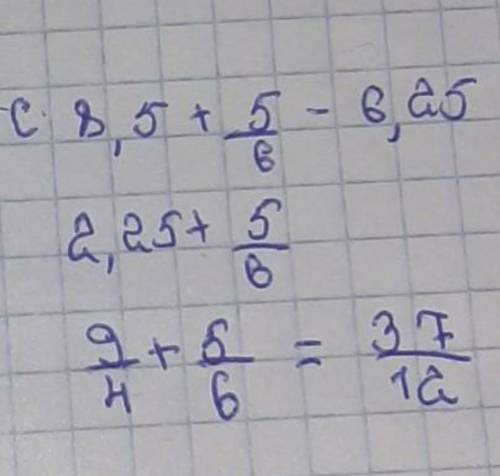 c. 8,5 + 5/6 - 6,25
2,25 + 5/6
9/4 + 5/6 = 37/12